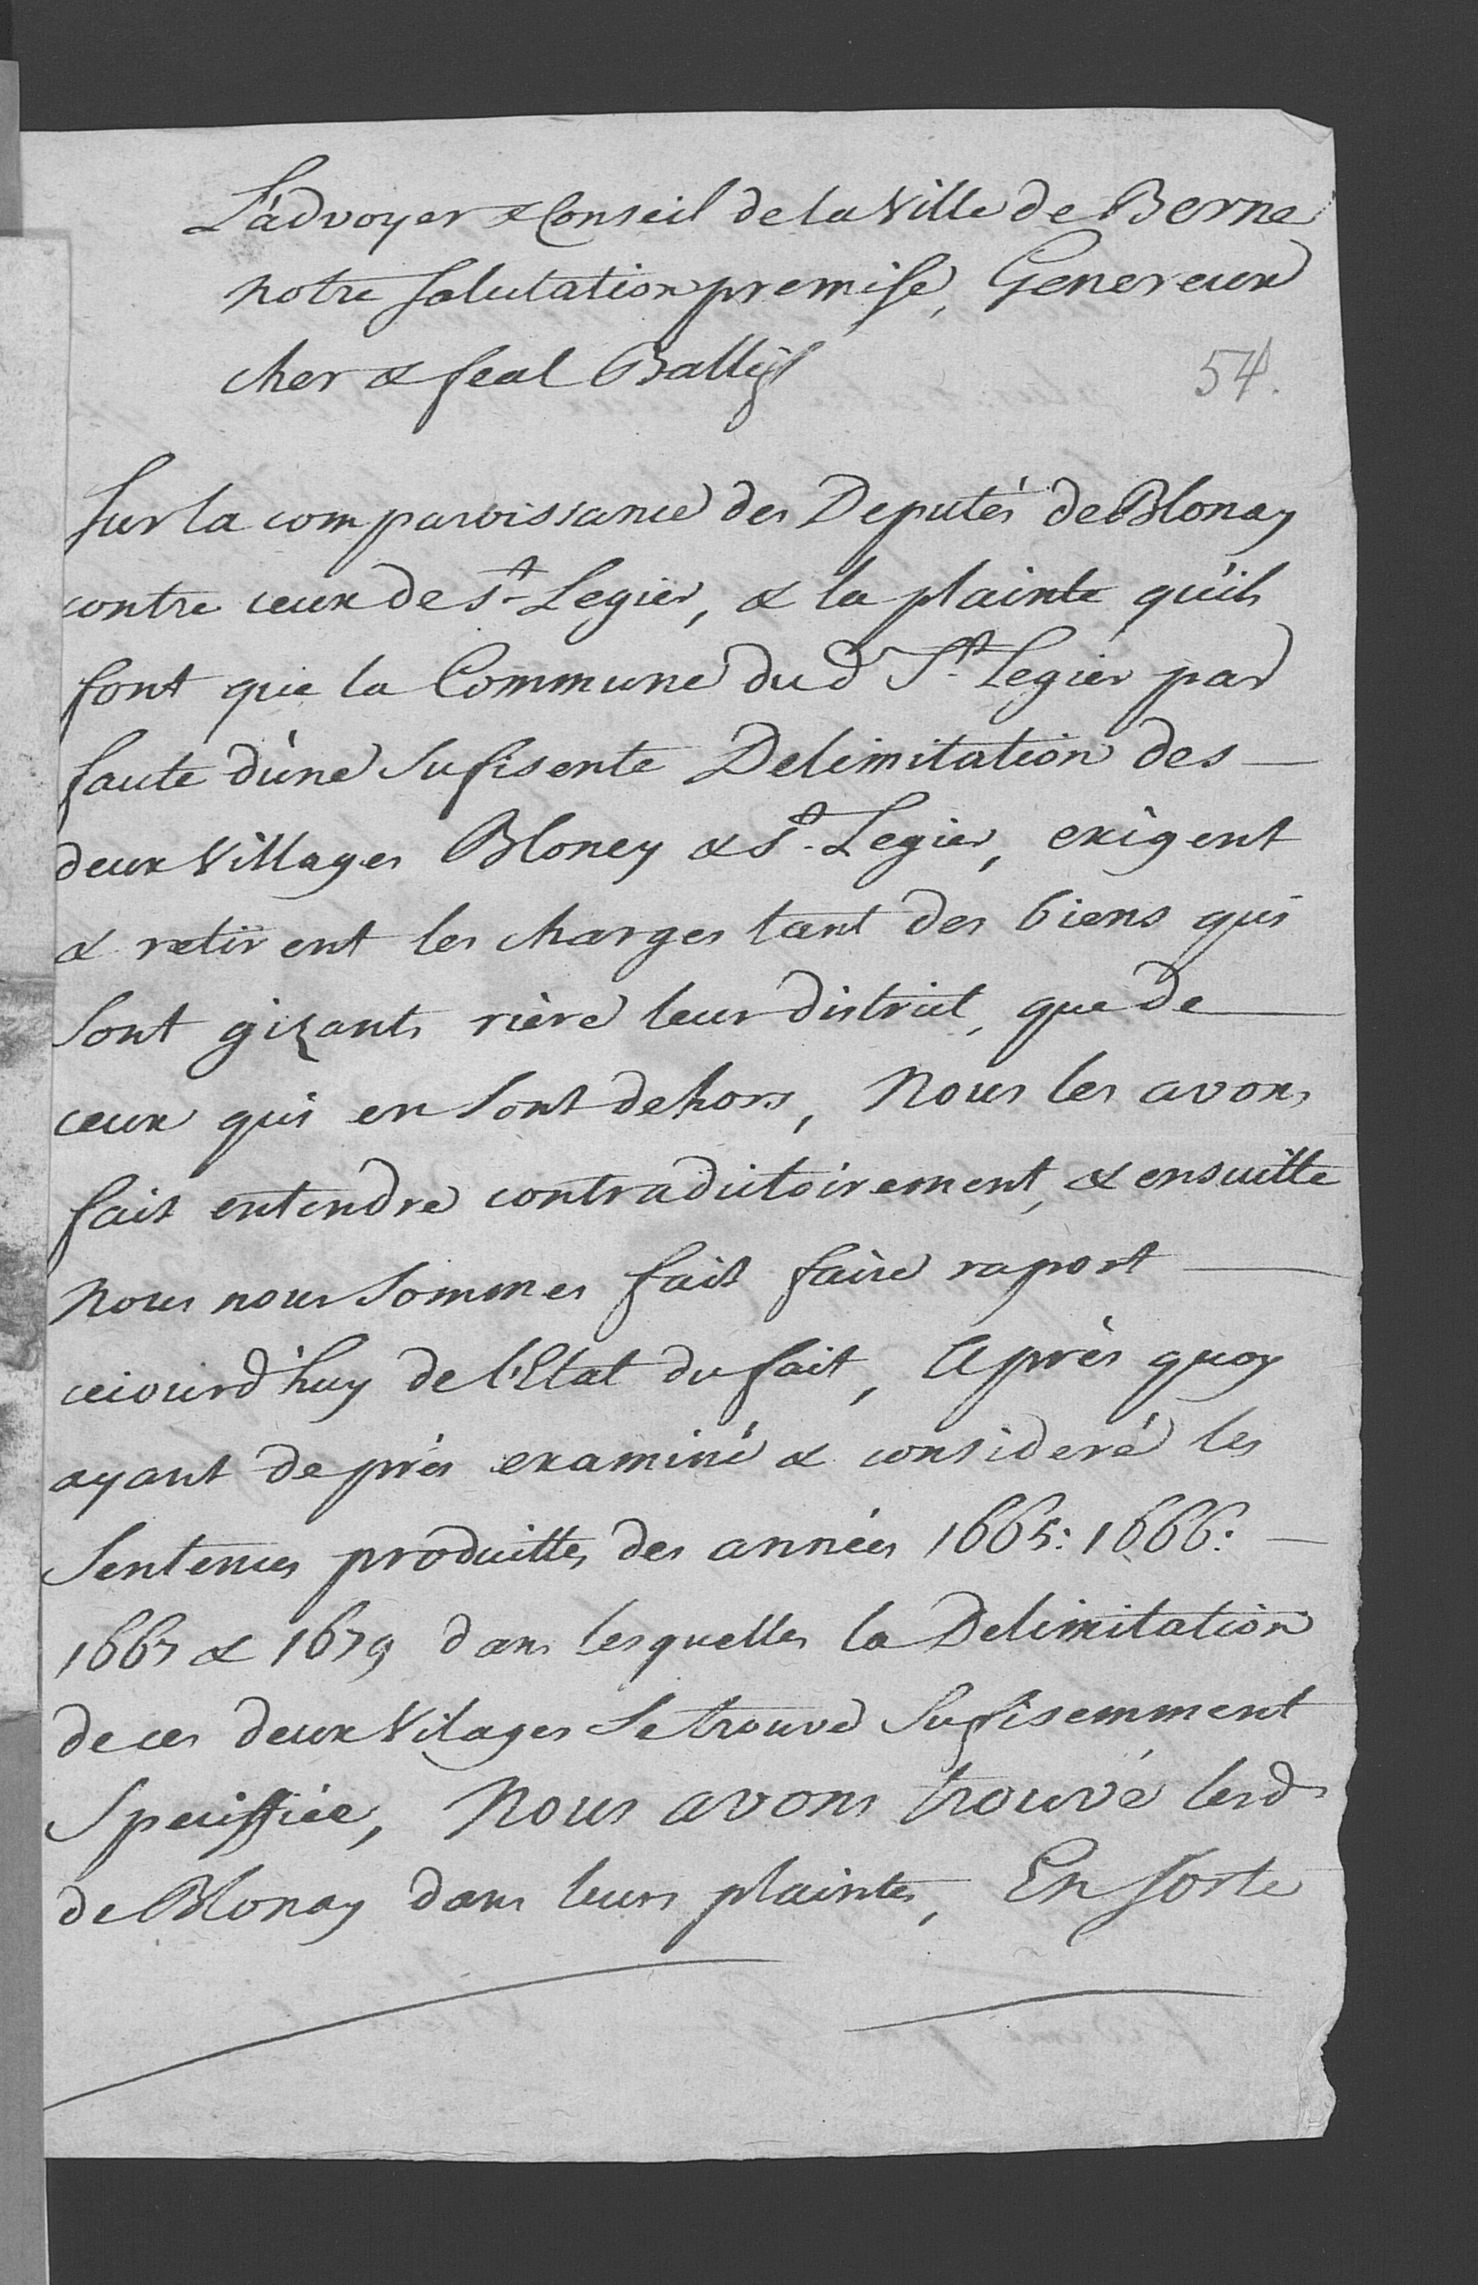 L'advoyer & Conseil de la Ville de Berne
notre salutation premise, Genereux
cher & feal Ballif
54.
Sur la comparoissance des Deputés de Blonay
contre ceux de St Legier, & la plainte qu'ils
font que la Commune dud St Legier par
faute d'une sufisente Delimitation des
deux Villages Bloney & St Legier, exigent
& retirent les charges tant des biens qui
sont gizants rière leur district, que de
ceux qui en sont dehors, Nous les avons
fait entendre contradictoirement, & ensuitte
Nous nous sommes fait faire raport
cejourd'huy de l'Etat du fait, Après quoy
ayant de près examiné & consideré les
Sentences produittes des années 1665: 1666:
1667 & 1679 dans lesquelles la Delimitation
de ces deux Vilages se trouve sufisemment
Speciffiée, Nous avons trouvé lesds
de Blonay dans leurs plaintes, En sorte